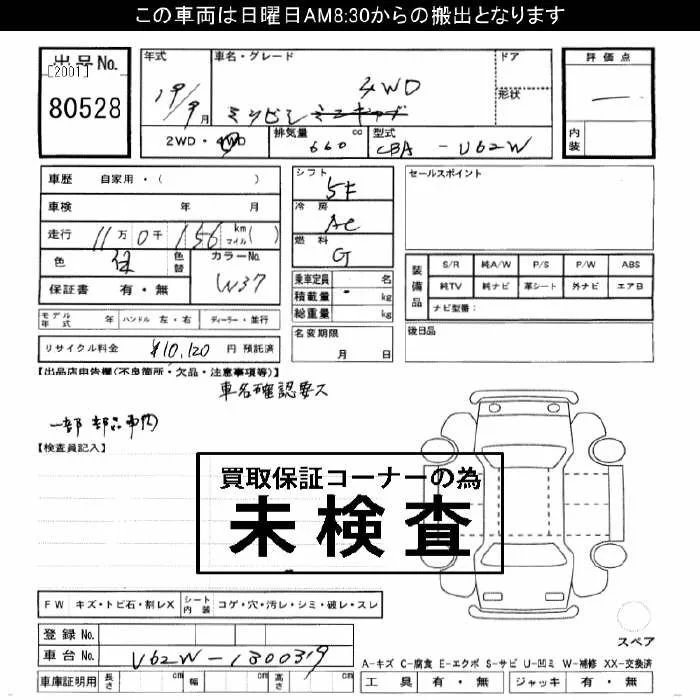 この車両は日曜日AM8:30からの搬出となります
出品No.
[2001]
80528
年式 車名・グレード ドア 形状
19/9月 ミツビシ ミニキャブ 4WD
2WD・4WD 排気量 660 cc 型式 CBA - U62W
評価点
―
内装
車歴 自家用・( )
車検 年 月
走行 11万0千156 km マイル( )
色 白 色替 カラーNo. W37
保証書 有・無
モデル年式 年 ハンドル 左・右 ディーラー・並行
リサイクル料金 ¥10,120 円 預託済
シフト 5F
冷房 AC
燃料 G
乗車定員 名
積載量 - kg
総重量 kg
名変期限 月 日
セールスポイント
装備品 S/R 純A/W P/S P/W ABS
純TV 純ナビ 革シート 外ナビ エアB
ナビ型番:
後日品
【出品店申告欄(不良箇所・欠品・注意事項等)】
車名確認要ス
一部部品車内
【検査員記入】
買取保証コーナーの為
未検査
FW キズ・トビ石・割レX シート内装 コゲ・穴・汚レ・シミ・破レ・スレ
登録No.
車台No. U62W-1300319
車庫証明用 長さ cm 幅 cm 高さ cm
スペア
A-キズ C-腐食 E-エクボ S-サビ U-凹ミ W-補修 XX-交換済
工具 有・無 ジャッキ 有・無